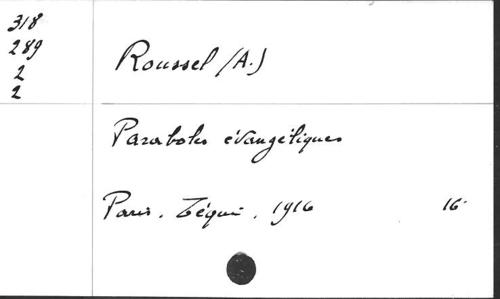 318
289
2
2
Roussel (A.)
Paraboles évangéliques
Paris. Téqui. 1916 16